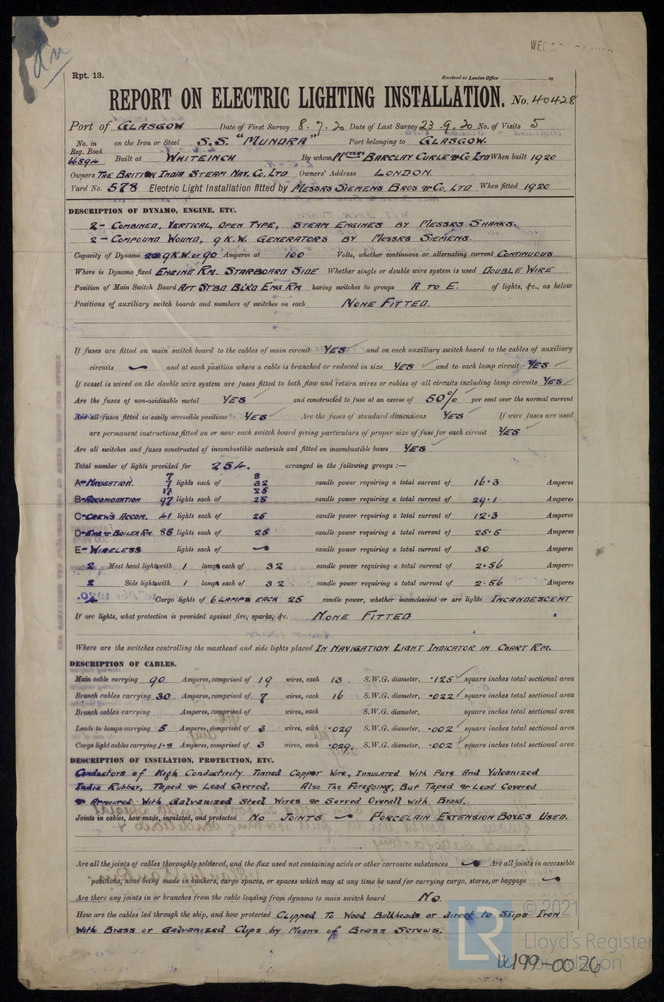 Rpt. 13.
Received at London Office
REPORT ON ELECTRIC LIGHTING INSTALLATION. No. 40428
Port of GLASGOW Date of First Survey 8.7.20 Date of Last Survey 23.9.20 No. of Visits 5
No. in on the Iron or Steel S.S. "MUNDRA" Port belonging to GLASGOW.
Reg. Book
Built at WHITEINCH By whom Messrs BARCLAY CURLE & Co LTD When built 1920
Owners THE BRITISH INDIA STEAM NAV. CO. LTD Owners' Address LONDON.
Yard No. 578 Electric Light Installation fitted by MESSRS SIEMENS BROS & Co, LTD When fitted 1920
DESCRIPTION OF DYNAMO, ENGINE, ETC.
2 - COMBINED, VERTICAL, OPEN TYPE, STEAM ENGINES BY MESSRS SHANKS.
2 - COMPOUND WOUND, 9 K.W. GENERATORS BY MESSRS SIEMENS.
Capacity of Dynamo 9 K.W. or 90 Amperes at 100 Volts, whether continuous or alternating current CONTINUOUS
Where is Dynamo fixed ENGINE RM. STARBOARD SIDE Whether single or double wire system is used DOUBLE WIRE
Position of Main Switch Board AFT STBD BLKD ENG RM having switches to groups A TO E. of lights, &c., as below
Positions of auxiliary switch boards and numbers of switches on each NONE FITTED.
If fuses are fitted on main switch board to the cables of main circuit YES and on each auxiliary switch board to the cables of auxiliary
circuits — and at each position where a cable is branched or reduced in size YES and to each lamp circuit YES
If vessel is wired on the double wire system are fuses fitted to both flow and return wires or cables of all circuits including lamp circuits YES
Are the fuses of non-oxidizable metal YES and constructed to fuse at an excess of 50% per cent over the normal current
Are all fuses fitted in easily accessible positions YES Are the fuses of standard dimensions YES If wire fuses are used
are permanent instructions fitted on or near each switch board giving particulars of proper size of fuse for each circuit YES
Are all switches and fuses constructed of incombustible materials and fitted on incombustible bases YES
Total number of lights provided for 254. arranged in the following groups :—
A - NAVIGATION. 7 lights each of 32 candle power requiring a total current of 16.3 Amperes
B - ACCOMODATION 97 lights each of 25 candle power requiring a total current of 29.1 Amperes
C - CREW'S ACCOM. 41 lights each of 25 candle power requiring a total current of 12.3 Amperes
D - ENG & BOILER RM. 85 lights each of 25 candle power requiring a total current of 25.5 Amperes
E - WIRELESS lights each of — candle power requiring a total current of 30 Amperes
2 Mast head light with 1 lamps each of 32 candle power requiring a total current of 2.56 Amperes
2 Side light with 1 lamps each of 32 candle power requiring a total current of 2.56 Amperes
Cargo lights of 6 LAMPS EACH 25 candle power, whether incandescent or arc lights INCANDESCENT
If arc lights, what protection is provided against fire, sparks, &c. NONE FITTED
Where are the switches controlling the masthead and side lights placed IN NAVIGATION LIGHT INDICATOR IN CHART RM.
DESCRIPTION OF CABLES.
Main cable carrying 90 Amperes, comprised of 19 wires, each 13 S.W.G. diameter, .125 square inches total sectional area
Branch cables carrying 30 Amperes, comprised of 7 wires, each 16 S.W.G. diameter, .022 square inches total sectional area
Branch cables carrying Amperes, comprised of wires, each S.W.G. diameter, square inches total sectional area
Leads to lamps carrying 5 Amperes, comprised of 3 wires, each .029 S.W.G. diameter, .002 square inches total sectional area
Cargo light cables carrying 1.8 Amperes, comprised of 3 wires, each .029 S.W.G. diameter, .002 square inches total sectional area
DESCRIPTION OF INSULATION, PROTECTION, ETC.
Conductors of High Conductivity Tinned Copper Wire, Insulated With Pure And Vulcanized
India Rubber, Taped & Lead Covered. Also The Foregoing, But Taped & Lead Covered
& Armoured With Galvanized Steel Wires & Served Overall with Braid.
Joints in cables, how made, insulated, and protected NO JOINTS — PORCELAIN EXTENSION BOXES USED.
Are all the joints of cables thoroughly soldered, and the flux used not containing acids or other corrosive substances — Are all joints in accessible
positions, none being made in bunkers, cargo spaces, or spaces which may at any time be used for carrying cargo, stores, or baggage —
Are there any joints in or branches from the cable leading from dynamo to main switch board NO
How are the cables led through the ship, and how protected Clipped To Wood Bulkheads or direct to Ships Iron
With Brass or Galvanized Clips by Means of Brass Screws.
© 2021
LR
Lloyd's Register
Foundation
W199-0026